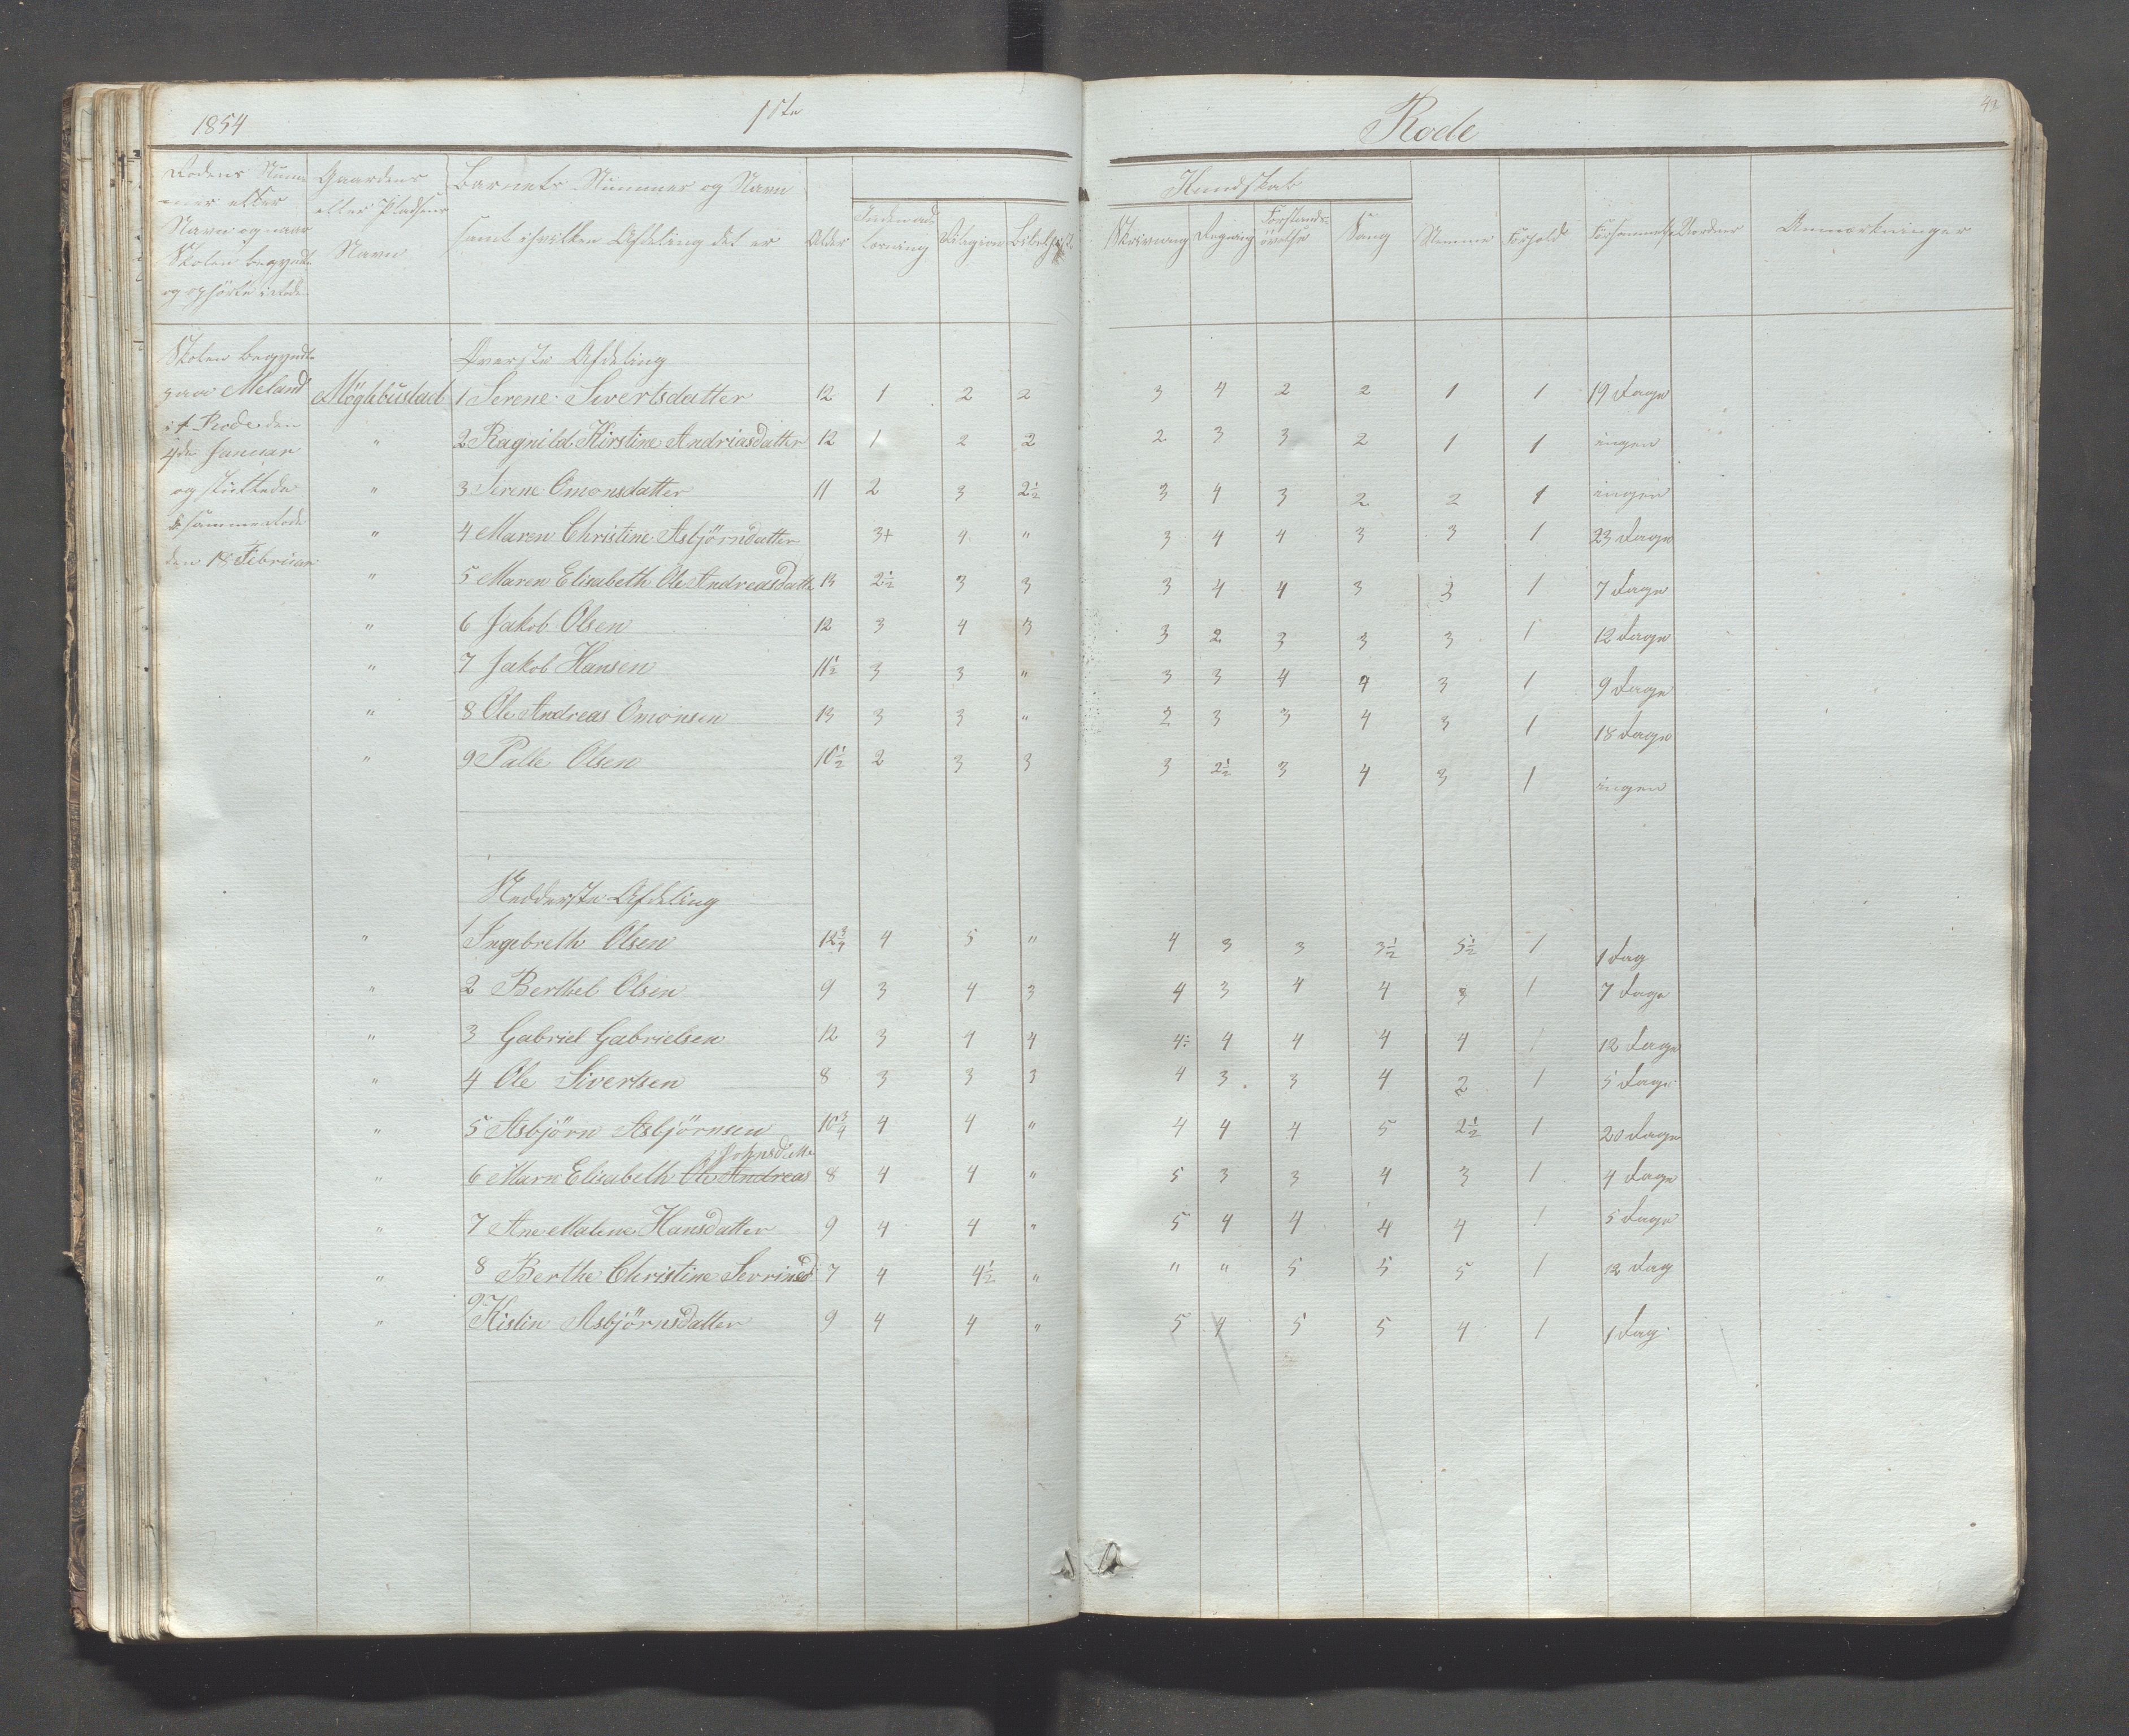 1854 1ste Rode 42
Rodens Num-
mer eller
Navn og naar
Skolen begyndte
og ophørte i Roden
Gaardens
eller Pladsens
Navn
Barnets Nummer og Navn
samt i hvilken Afdeling det er
Alder
Indenad-
læsning
Religion
Bibelhist
Kundskab
Skrivning
Regning
Forstands-
øvelse
Sang
Nemme
Forhold
Forsømmelse
Anmærkninger
Skolen begyndte
paa Meland
i 1 Rode den
4de Januar
og sluttede
i samme Rode
den 18 Februar
Øverste Afdeling
Möglebustad 1 Serene Sivertsdatter 12 1 2 2 3 4 2 2 1 1 19 Dage
" 2 Ragnild Kirstine Andriasdatter 12 1 2 2 2 3 3 2 1 1 ingen
" 3 Serene Omonsdatter 11 2 3 2½ 3 4 3 2 2 1 ingen
" 4 Maren Christine Asbjörnsdatter 3+ 4 " 3 4 4 3 3 1 23 Dage
" 5 Maren Elisabeth Ole Andreasdatte 13 2½ 3 3 3 4 4 3 3 1 7 Dage
" 6 Jakob Olsen 12 3 4 3 3 2 3 3 3 1 12 Dage
" 7 Jakob Hansen 11½ 3 3 " 3 3 4 4 3 1 9 Dage
" 8 Ole Andreas Omonsen 13 3 3 " 2 3 3 4 3 1 18 Dage
" 9 Palle Olsen 10½ 2 3 3 3 2½ 3 4 3 1 ingen
Nedderste Afdeling
" 1 Ingebreth Olsen 12¾ 4 5 " 4 3 3 3½ 3½ 1 1 Dag
" 2 Berthel Olsen 9 3 4 3 4 3 4 4 3 1 7 Dage
" 3 Gabriel Gabrielsen 12 3 4 4 4÷ 4 4 4 4 1 12 Dage
" 4 Ole Sivertsen 8 3 3 3 4 3 3 4 2 1 5 Dage
" 5 Asbjörn Asbjörnsen 10¾ 4 4 " 4 4 4 5 2½ 1 20 Dage
Johnsdatte
" 6 Marn Elisabeth Ole Andreas 8 4 4 " 5 3 3 4 3 1 4 Dage
" 7 Ane Malene Hansdatter 9 4 4 " 5 4 4 4 4 1 5 Dage
" 8 Berthe Christine Sevrinsd 7 4 4½ " " " 5 5 5 1 12 Dag
" 9 Kistin Asbjörnsdatter 9 4 4 " 5 4 5 5 4 1 1 Dag